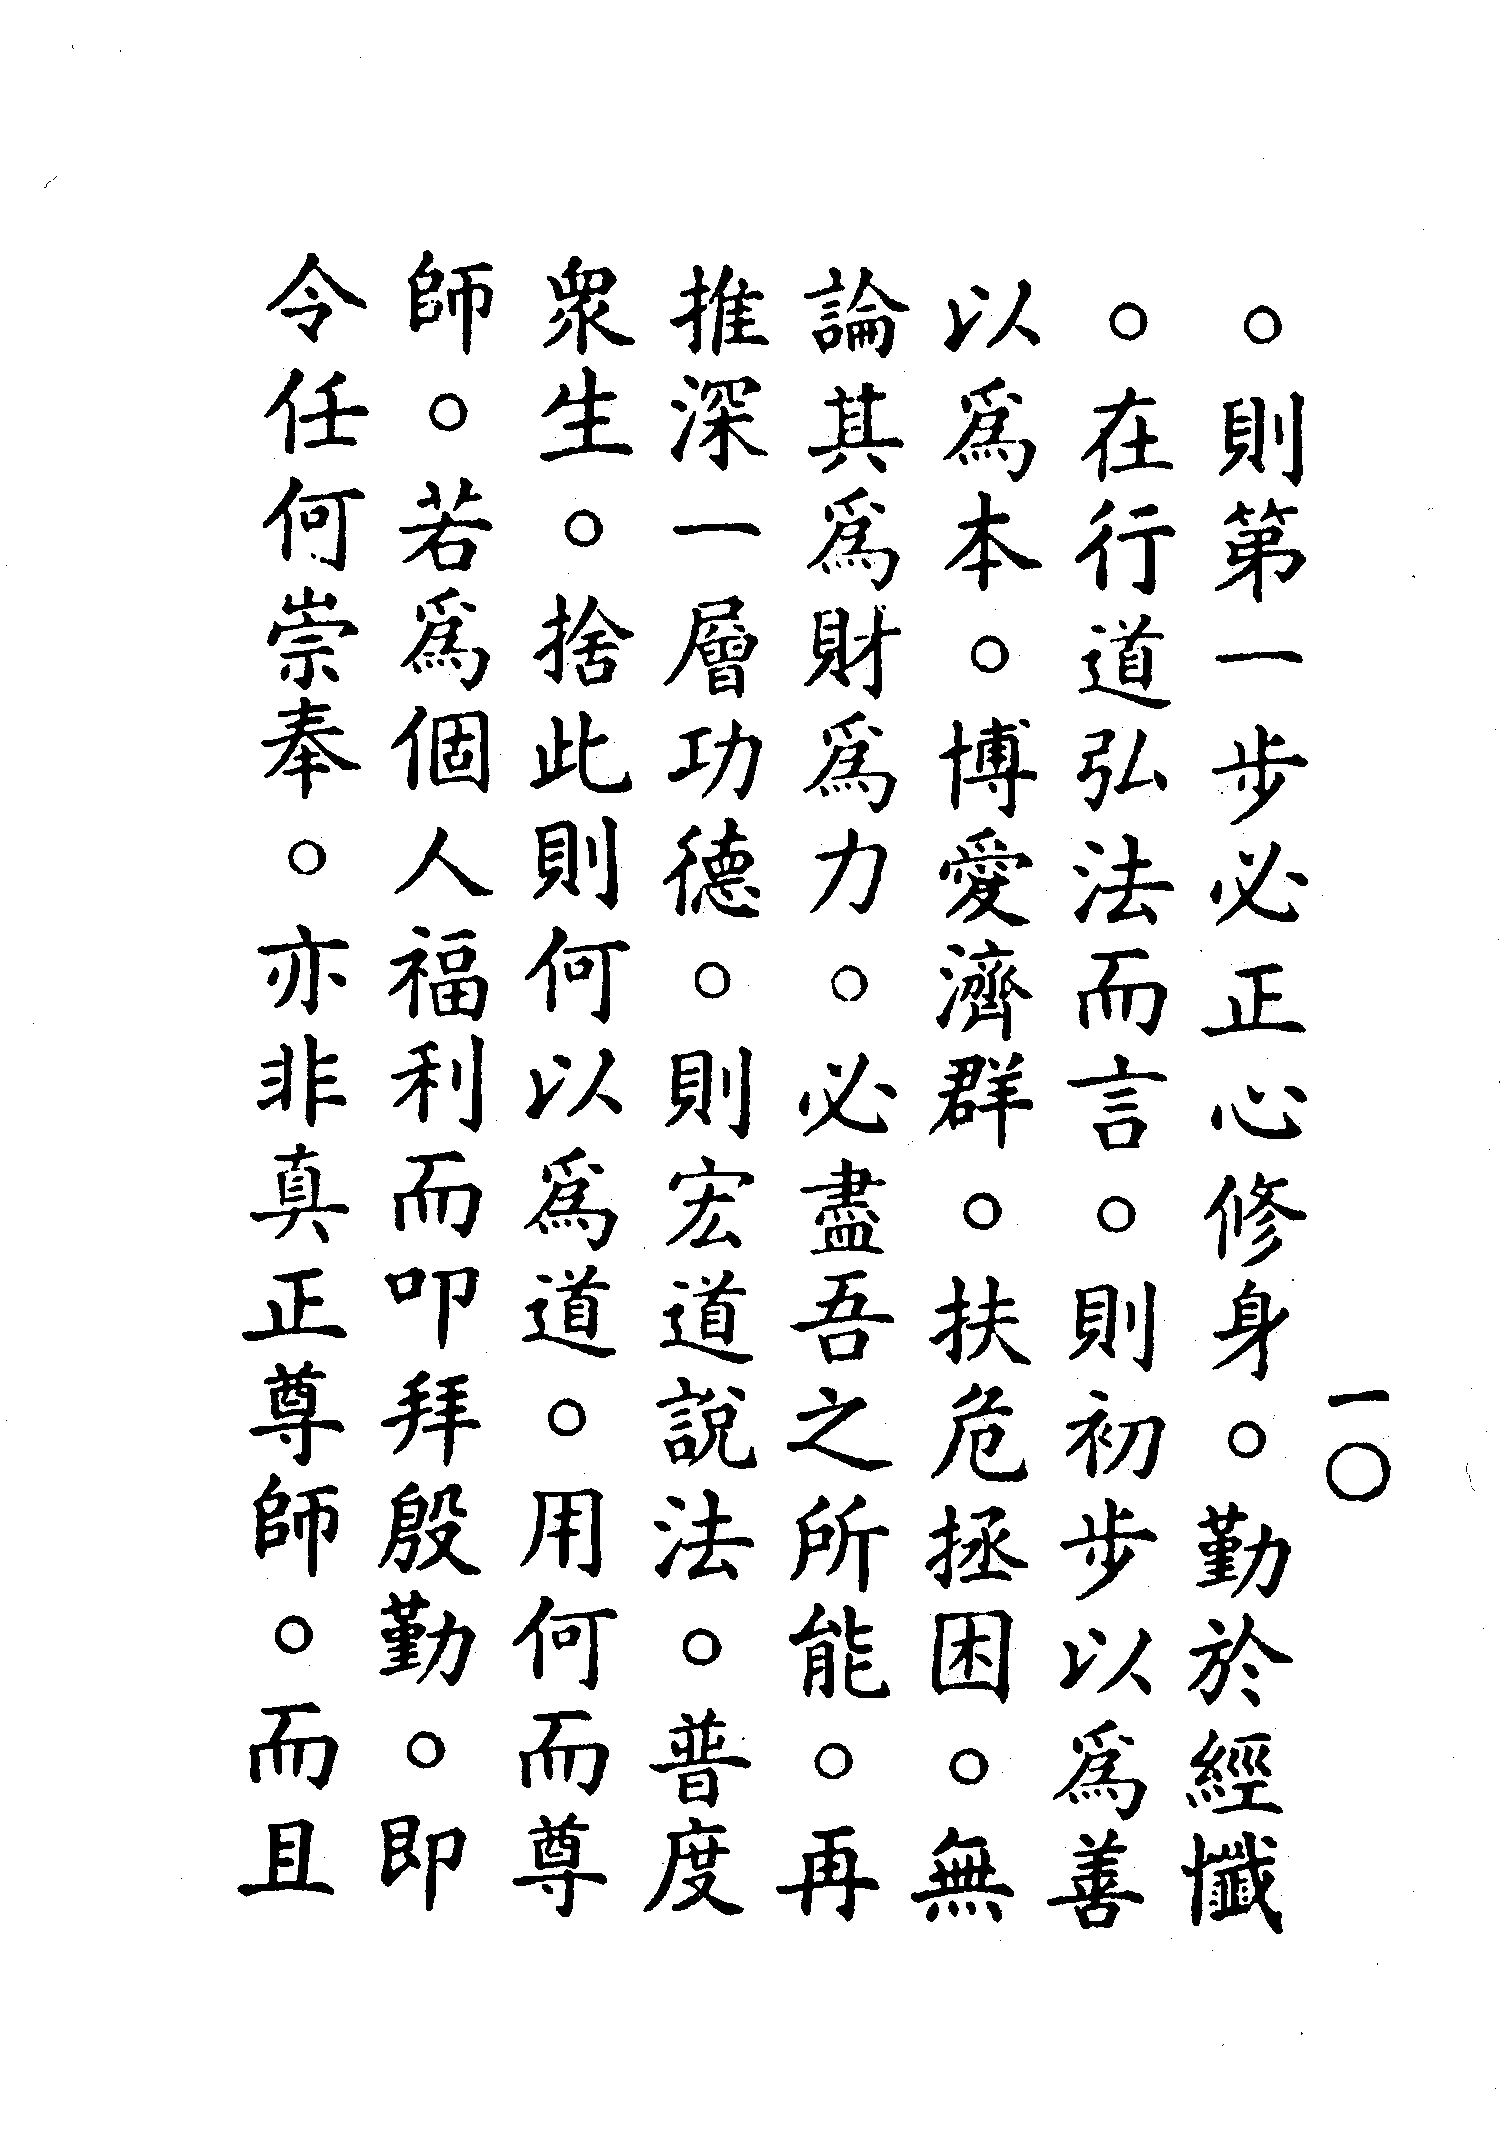 一〇
。則第一步必正心修身。勤於經懺
。在行道弘法而言。則初步以爲善
以爲本。博愛濟群。扶危拯困。無
論其爲財爲力。必盡吾之所能。再
推深一層功德。則宏道說法。普度
眾生。捨此則何以爲道。用何而尊
師。若爲個人福利而叩拜殷勤。即
令任何崇奉。亦非真正尊師。而且